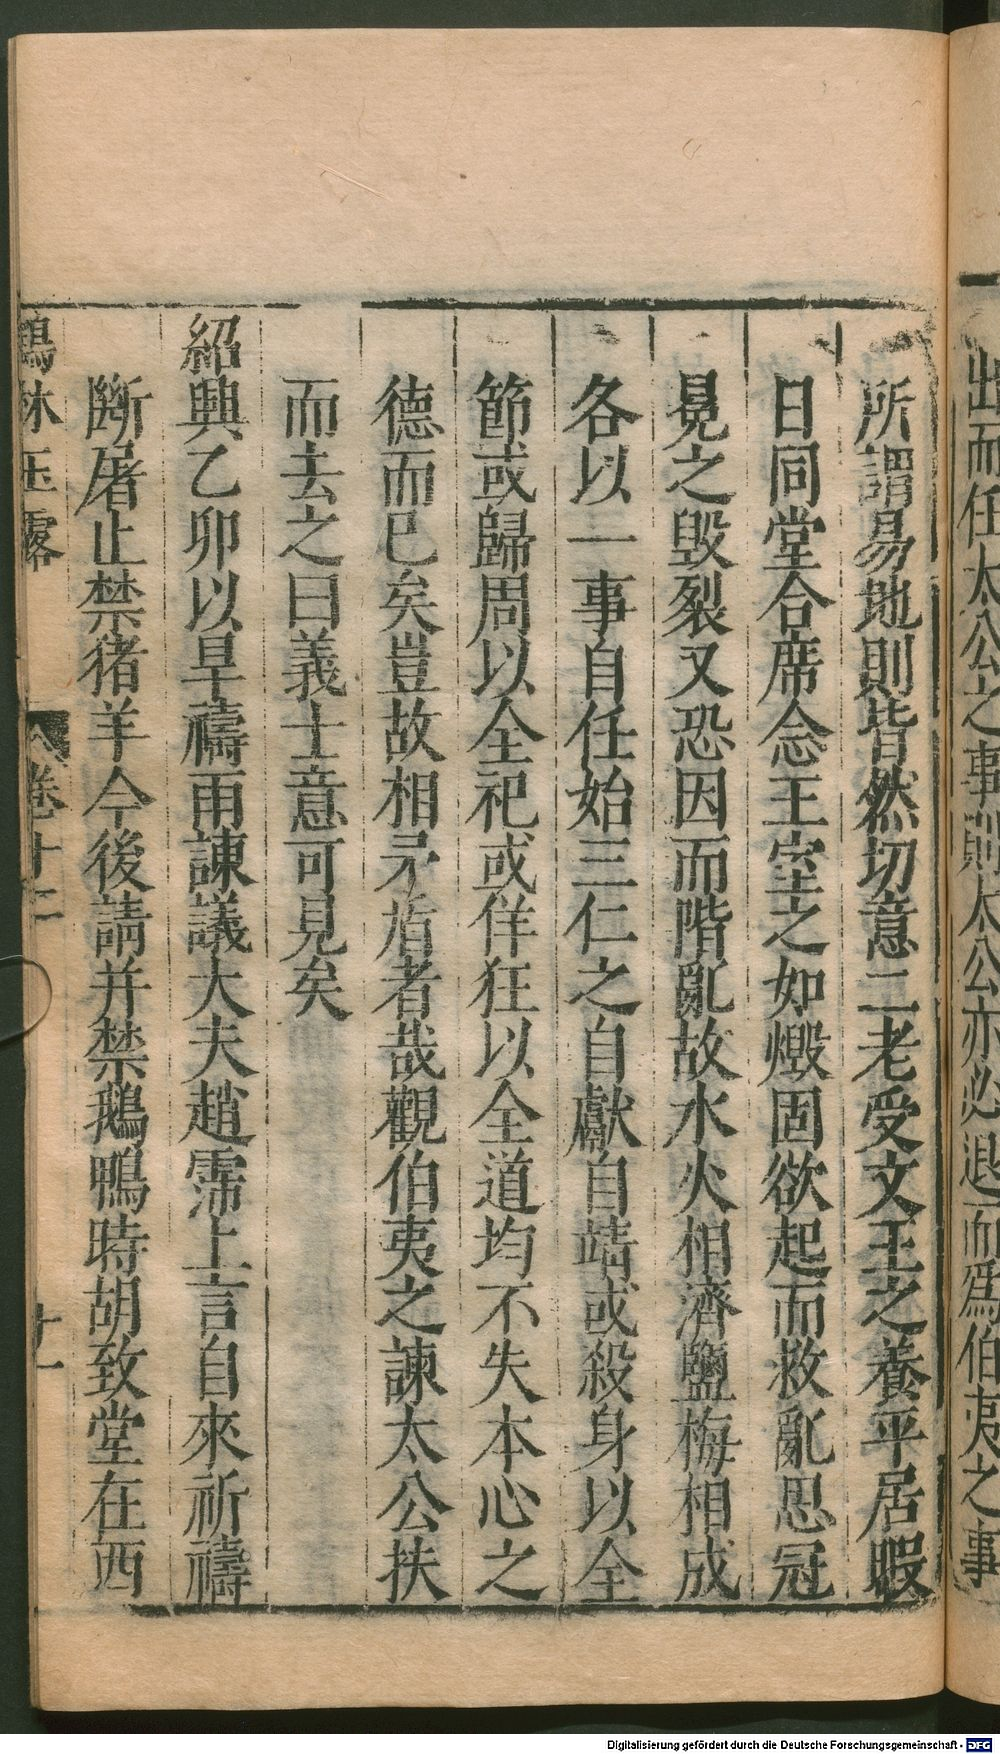 出而任太公之事則太公亦必退而爲伯夷之事
所謂易地則皆然切意二老受文王之養平居暇
日同堂合席念王室之如燬固欲起而救亂思冠
冕之毀裂又恐因而階亂故水火相濟鹽梅相成
各以一事自任始三仁之自獻自靖或殺身以全
節或歸周以全祀或佯狂以全道均不失本心之
德而已矣豈故相矛盾者哉觀伯夷之諫太公扶
而去之曰義士意可見矣
紹興乙卯以旱禱雨諫議大夫趙霈上言自來祈禱
斷屠止禁猪羊今後請并禁鵝鴨時胡致堂在西
鶴林玉露 卷十二 十一
Digitalisierung gefördert durch die Deutsche Forschungsgemeinschaft - DFG